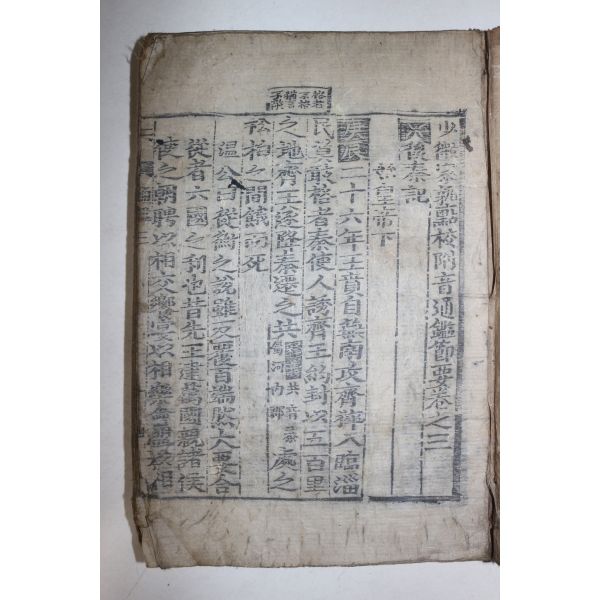 少微家塾點校附音通鑑節要卷之三
後秦記
始皇帝下
庚辰二十六年王賁自燕南攻齊猝入臨淄
民莫敢格者秦使人誘齊王約封以五百里
之地齊王遂降秦遷之共共音恭屬河內郡處之
松柏之間餓而死
溫公曰從衡之說雖反覆百端然大要合
從者六國之利也昔先王建萬國親諸侯
使之朝聘以相交饗宴以相樂會盟以相